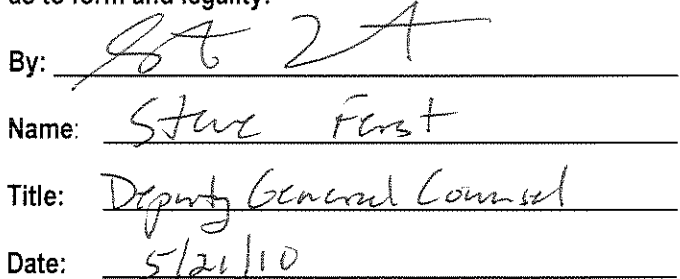 as to form and legality.
By:
Name: Steve Ferst
Title: Deputy General Counsel
Date: 5/21/10